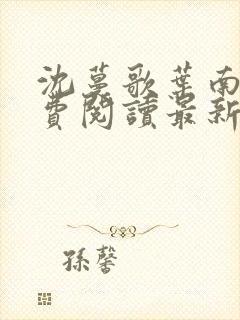 沈蔓歌葉南
費閱讀最新
孫馨